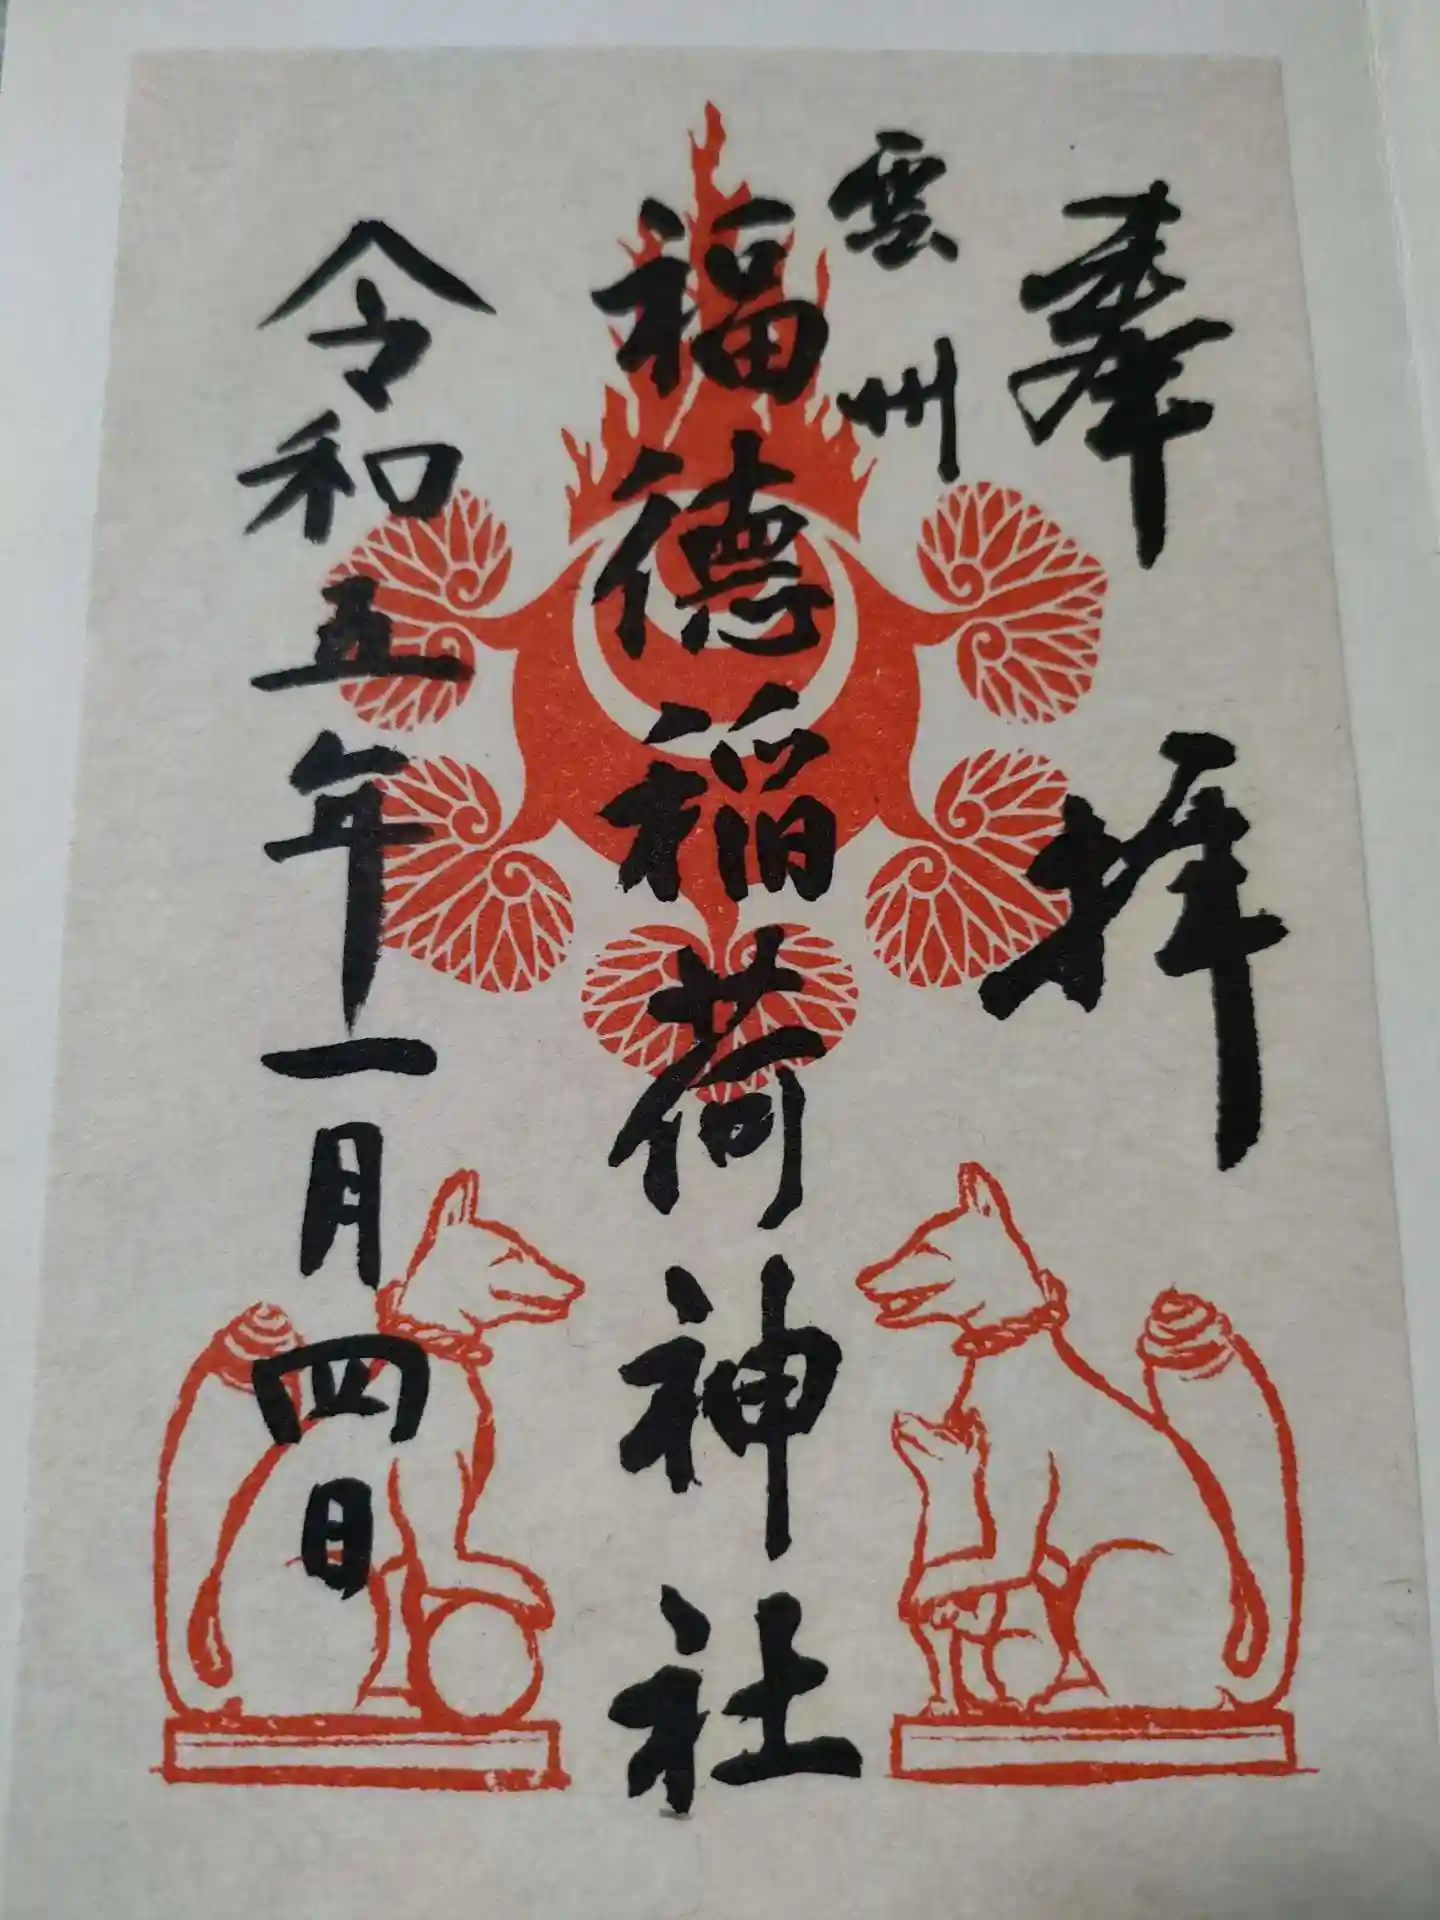 奉拝
雲州
福徳稲荷神社
令和五年一月四日